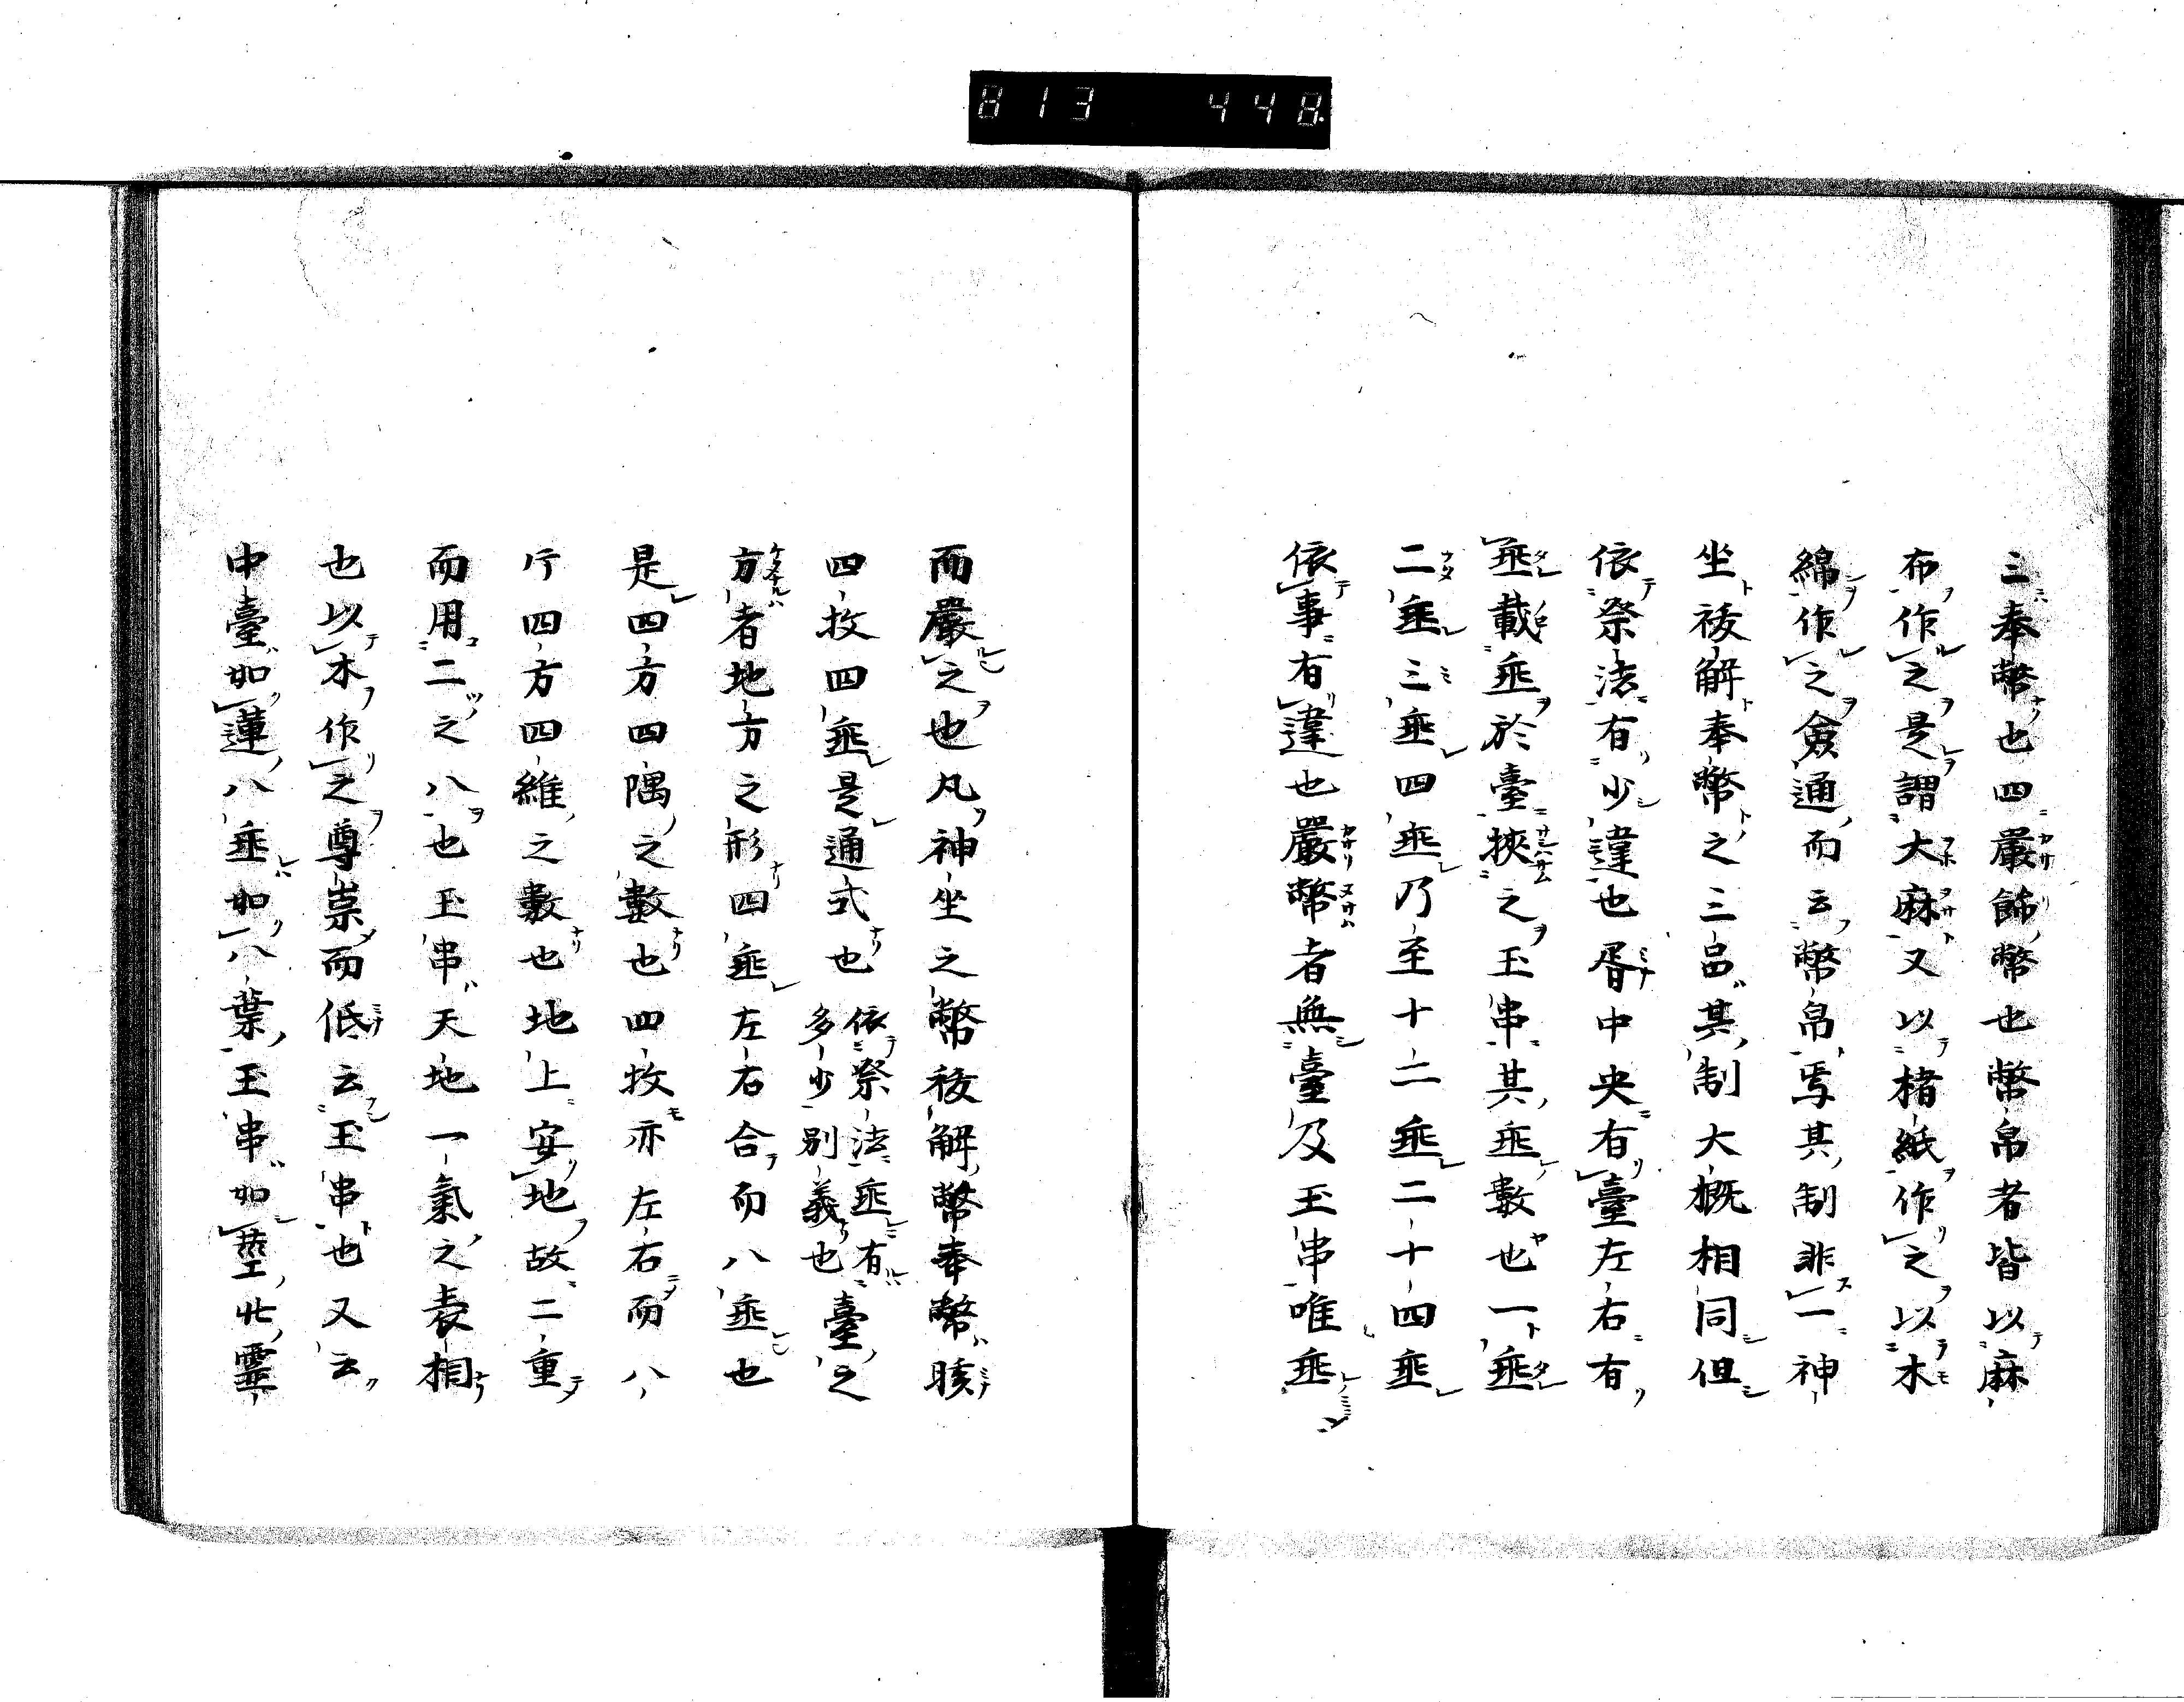 813 448
三奉幣也四嚴飾幣也幣帛者皆以麻
布作之是謂大麻又以楮紙作之以木
綿作之僉通而云幣帛焉其制非一神
坐祓解奉幣之三品其制大概相同但
依祭法有少違也胥中央有臺左右有
垂載垂於臺挾之玉串其垂數也一垂
二垂三垂四垂乃至十二垂二十四垂
依事有違也嚴幣者無臺及玉串唯垂
而嚴之也凡神坐之幣祓解幣奉幣晐
四枚四垂是通式也依祭法垂有多少別義也臺之
方者地方之形四垂左右合而八垂也
是四方四隅之數也四枚亦左右而八
片四方四維之數也地上安地故二重
而用二之八也玉串天地一氣之表相
也以木作之尊崇而低云玉串也又云
中臺如蓮八垂如八葉玉串如莖此靈